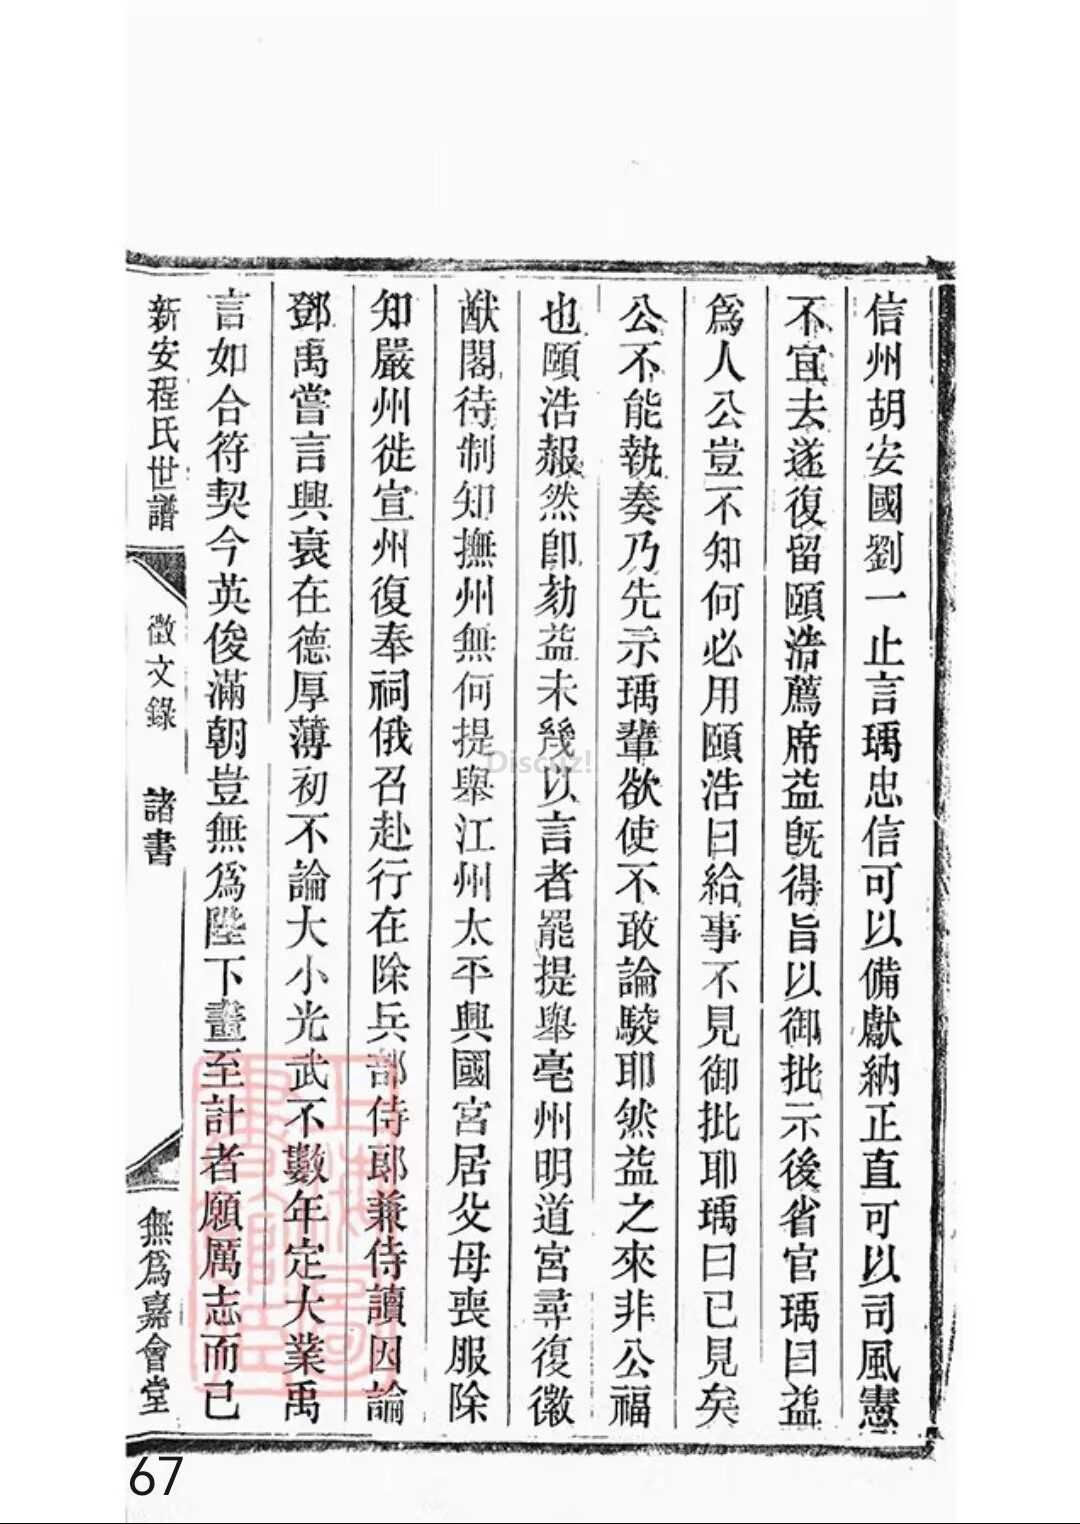 信州胡安國劉一止言瑀忠信可以備獻納正直可以司風憲
不宜去遂復留頤浩薦席益旣得旨以御批示後省官瑀曰益
爲人公豈不知何必用頤浩曰給事不見御批耶瑀曰已見矣
公不能執奏乃先示瑀輩欲使不敢論駮耶然益之來非公福
也頤浩赧然卽劾益未幾以言者罷提舉亳州明道宮尋復徽
猷閣待制知撫州無何提舉江州太平興國宮居父母喪服除
知嚴州徙宣州復奉祠俄召赴行在除兵部侍郞兼侍讀因論
鄧禹嘗言興衰在德厚薄初不論大小光武不數年定大業禹
言如合符契今英俊滿朝豈無爲陛下畫至計者願厲志而已
新安程氏世譜
徵文錄
諸書
無爲嘉會堂
Discuz!
67